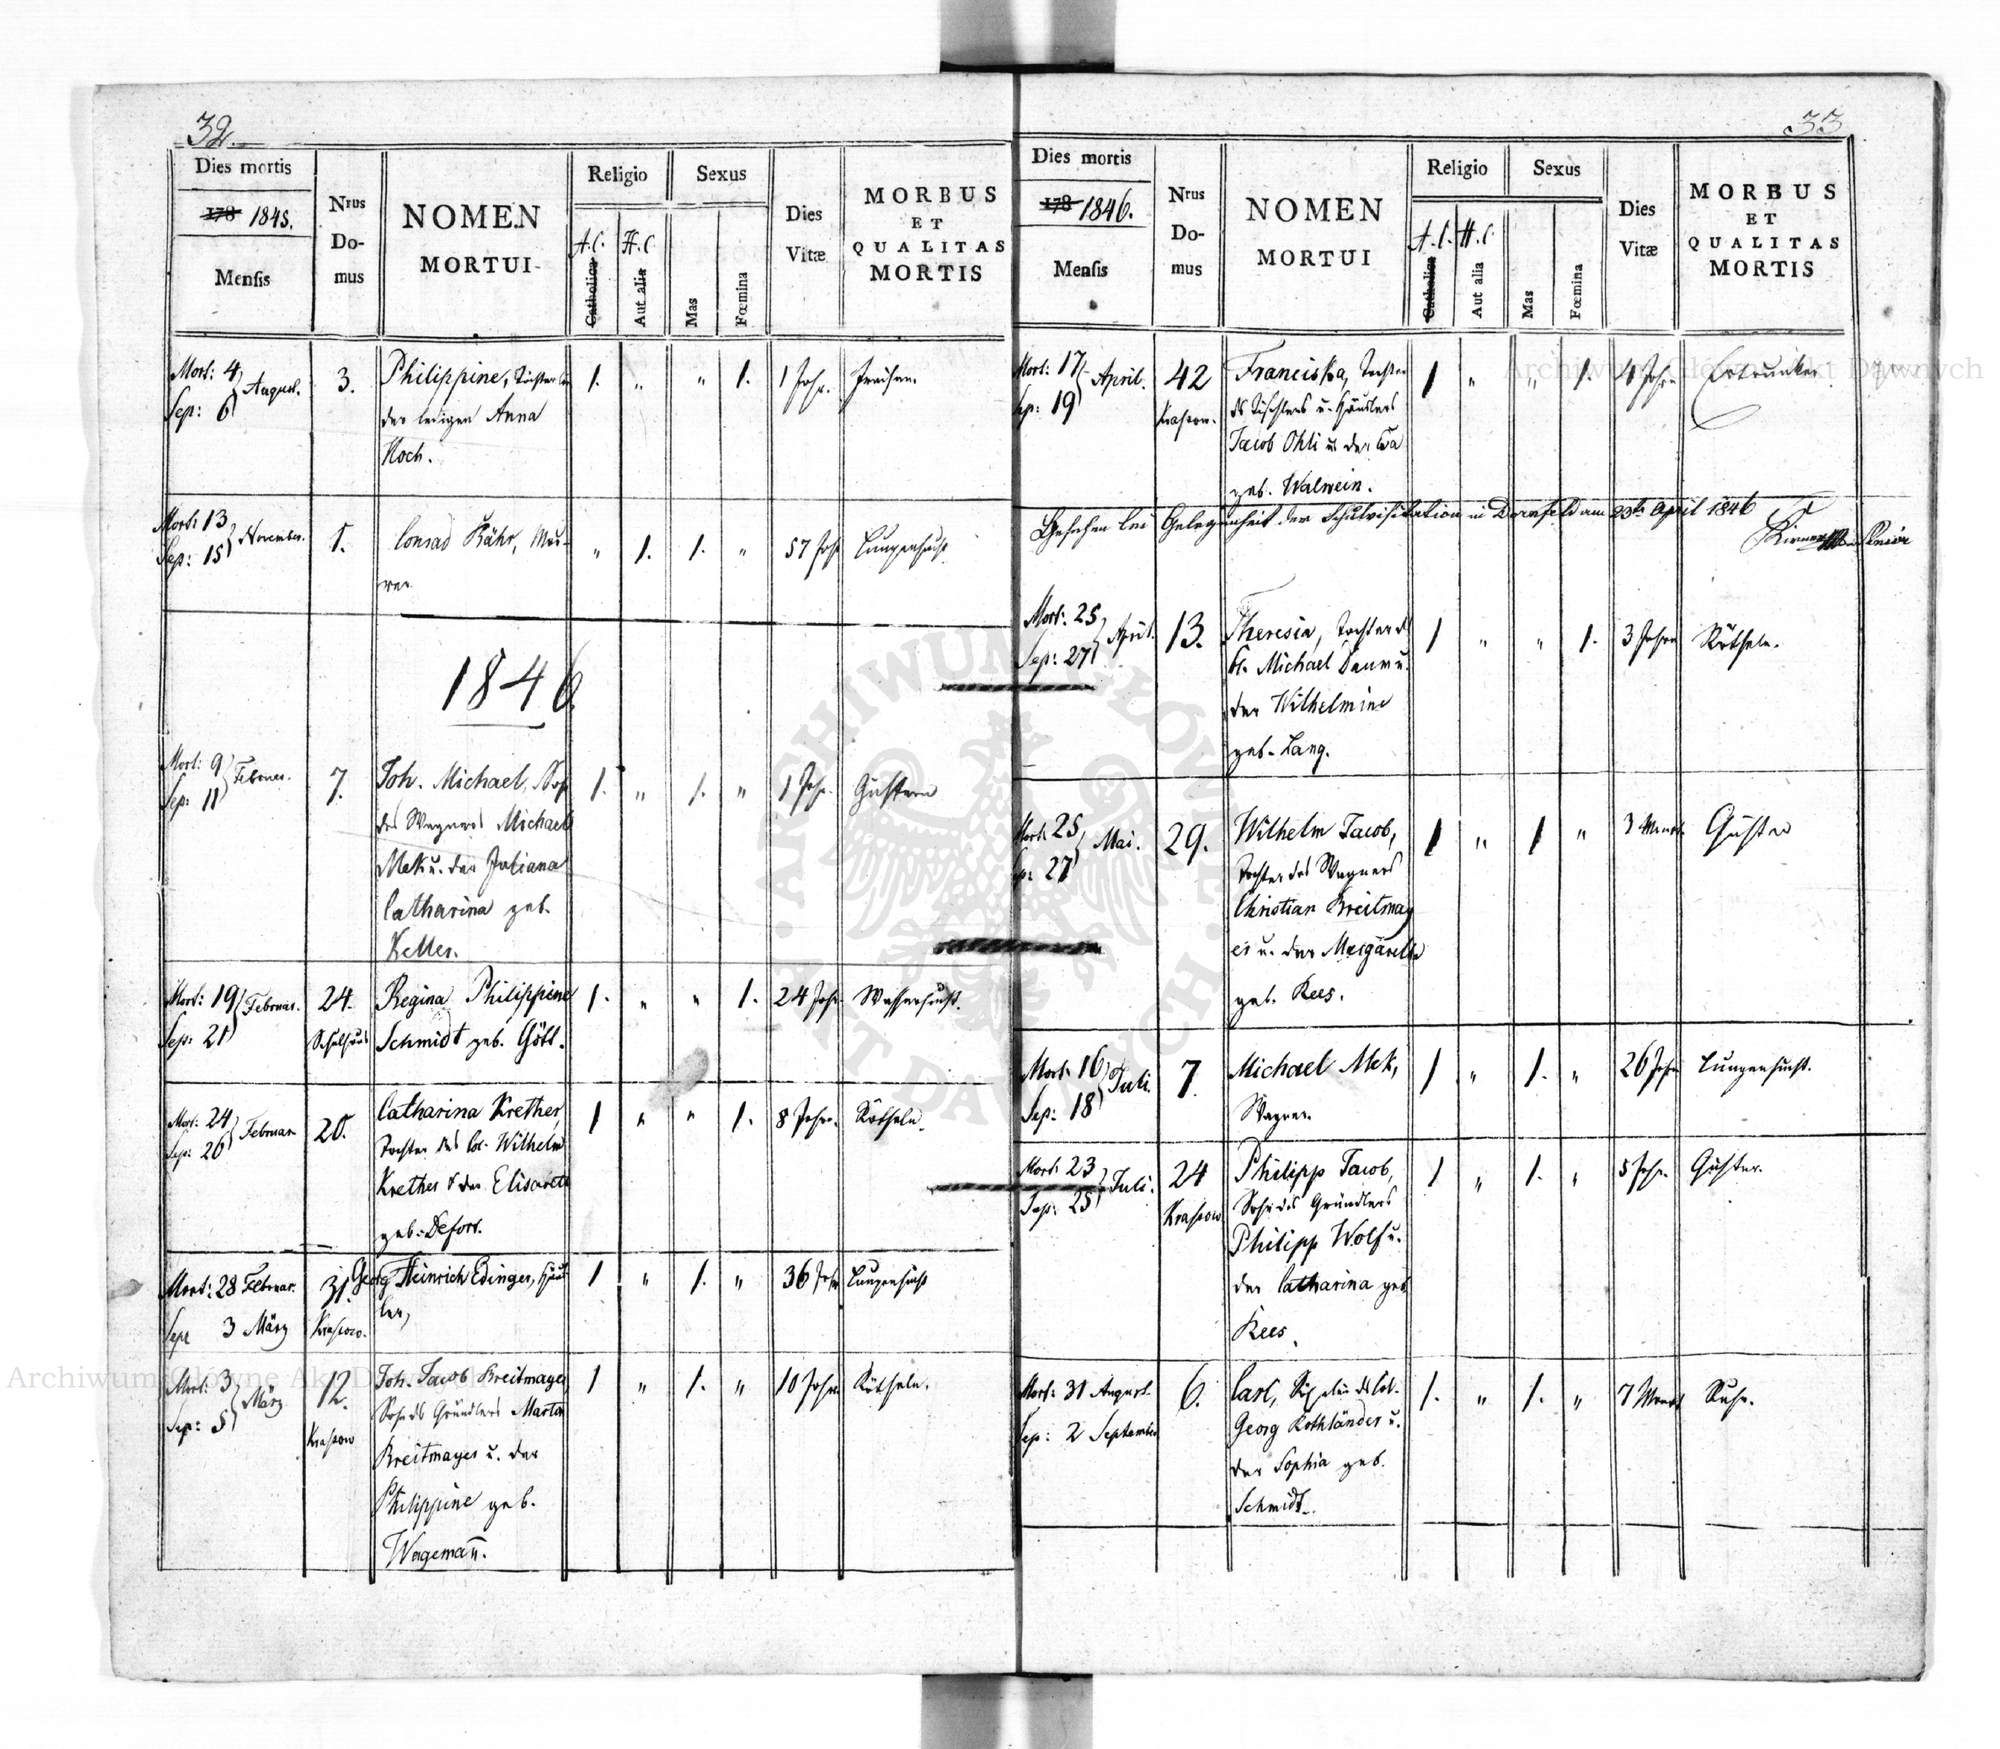 32.
Dies mortis
178 1845.
Mensis
Nrus
Do-
mus
NOMEN
MORTUI
Religio
A.C.
H.C.
Catholica
Aut alia
Sexus
Mas
Fœmina
Dies
Vitæ
MORBUS
ET
QUALITAS
MORTIS
Mort: 4
Sep: 6 August.
3.
Philippine, Tochter
der ledigen Anna
Koch.
1. " " 1.
1 Jahr.
Fraisen.
Mort: 13
Sep: 15 November.
1.
Conrad Bähr, Mau-
rer
" 1. 1. "
57 Jahr
Lungensucht
1846.
Mort: 9
Sep: 11 Februar.
7.
Joh. Michael, Sohn
des Wagners Michael
Mek u. der Juliana
Catharina geb.
Keller.
1. " 1. "
1 Jahr.
Husten
Mort: 19
Sep: 21 Februar.
24.
Schulhaus
Regina Philippine
Schmidt geb. Göll.
1. " " 1.
24 Jahr.
Wassersucht.
Mort: 24
Sep: 26 Februar
20.
Catharina Krether,
Tochter des Col. Wilhelm
Krether & der Elisabeth
geb. Defort.
1 " " 1.
8 Jahre.
Rötheln.
Mort: 28 Februar.
Sep: 3 März
31.
Krasow.
Georg Heinrich Edinger, Häus
ler,
1 " 1. "
36 Jahr
Lungensucht
Mort: 3
Sep: 5 März
12.
Krasow
Joh. Jacob Breitmayer,
Sohn des Gründlers Martin
Breitmayer u. der
Philippine geb.
Wagemañ.
1 " 1. "
10 Jahre
Rötheln.
33
Dies mortis
178 1846.
Mensis
Nrus
Do-
mus
NOMEN
MORTUI
Religio
A.C.
H.C.
Catholica
Aut alia
Sexus
Mas
Fœmina
Dies
Vitæ
MORBUS
ET
QUALITAS
MORTIS
Mort: 17
Sep: 19 April.
42
Krasow.
Franciska, Tochter
ds Tischlers u. Häuslers
Jacob Ohli u. der
geb. Walwein.
1 " " 1.
4 Jahre
Ertrunken
Gesehen bei Gelegenheit der Schulvisitation in Dornfeld am 23ten April 1846
Senior
Mort: 25
Sep: 27 April.
13.
Theresia, Tochter d
Col. Michael Daum u.
der Wilhelmine
geb. Lang.
1 " " 1.
3 Jahre
Rötheln.
Mort: 25
Sep: 27 Mai.
29.
Wilhelm Jacob,
Tochter des Wagners
Christian Breitmay
er u. der Margaretha
geb. Rees.
1 " 1 "
3 Monat.
Husten
Mort: 16
Sep: 18 Juli.
7.
Michael Mek,
Wagner.
1 " 1. "
26 Jahre
Lungensucht.
Mort: 23
Sep: 25 Juli.
24
Krasow
Philipp Jacob,
Sohn des Gründlers
Philipp Wolf u.
der Catharina geb.
Rees.
1 " 1. "
5 Jahr.
Husten.
Mort: 31 August.
Sep: 2 September
6.
Carl, Söhnlein ds Col.
Georg Rothländer u.
der Sophia geb.
Schmidt.
1. " 1. "
7 Monat
Ruhr.
Archiwum Główne Akt Dawnych
Archiwum Główne Akt Dawnych
ARCHIWUM GŁÓWNE AKT DAWNYCH